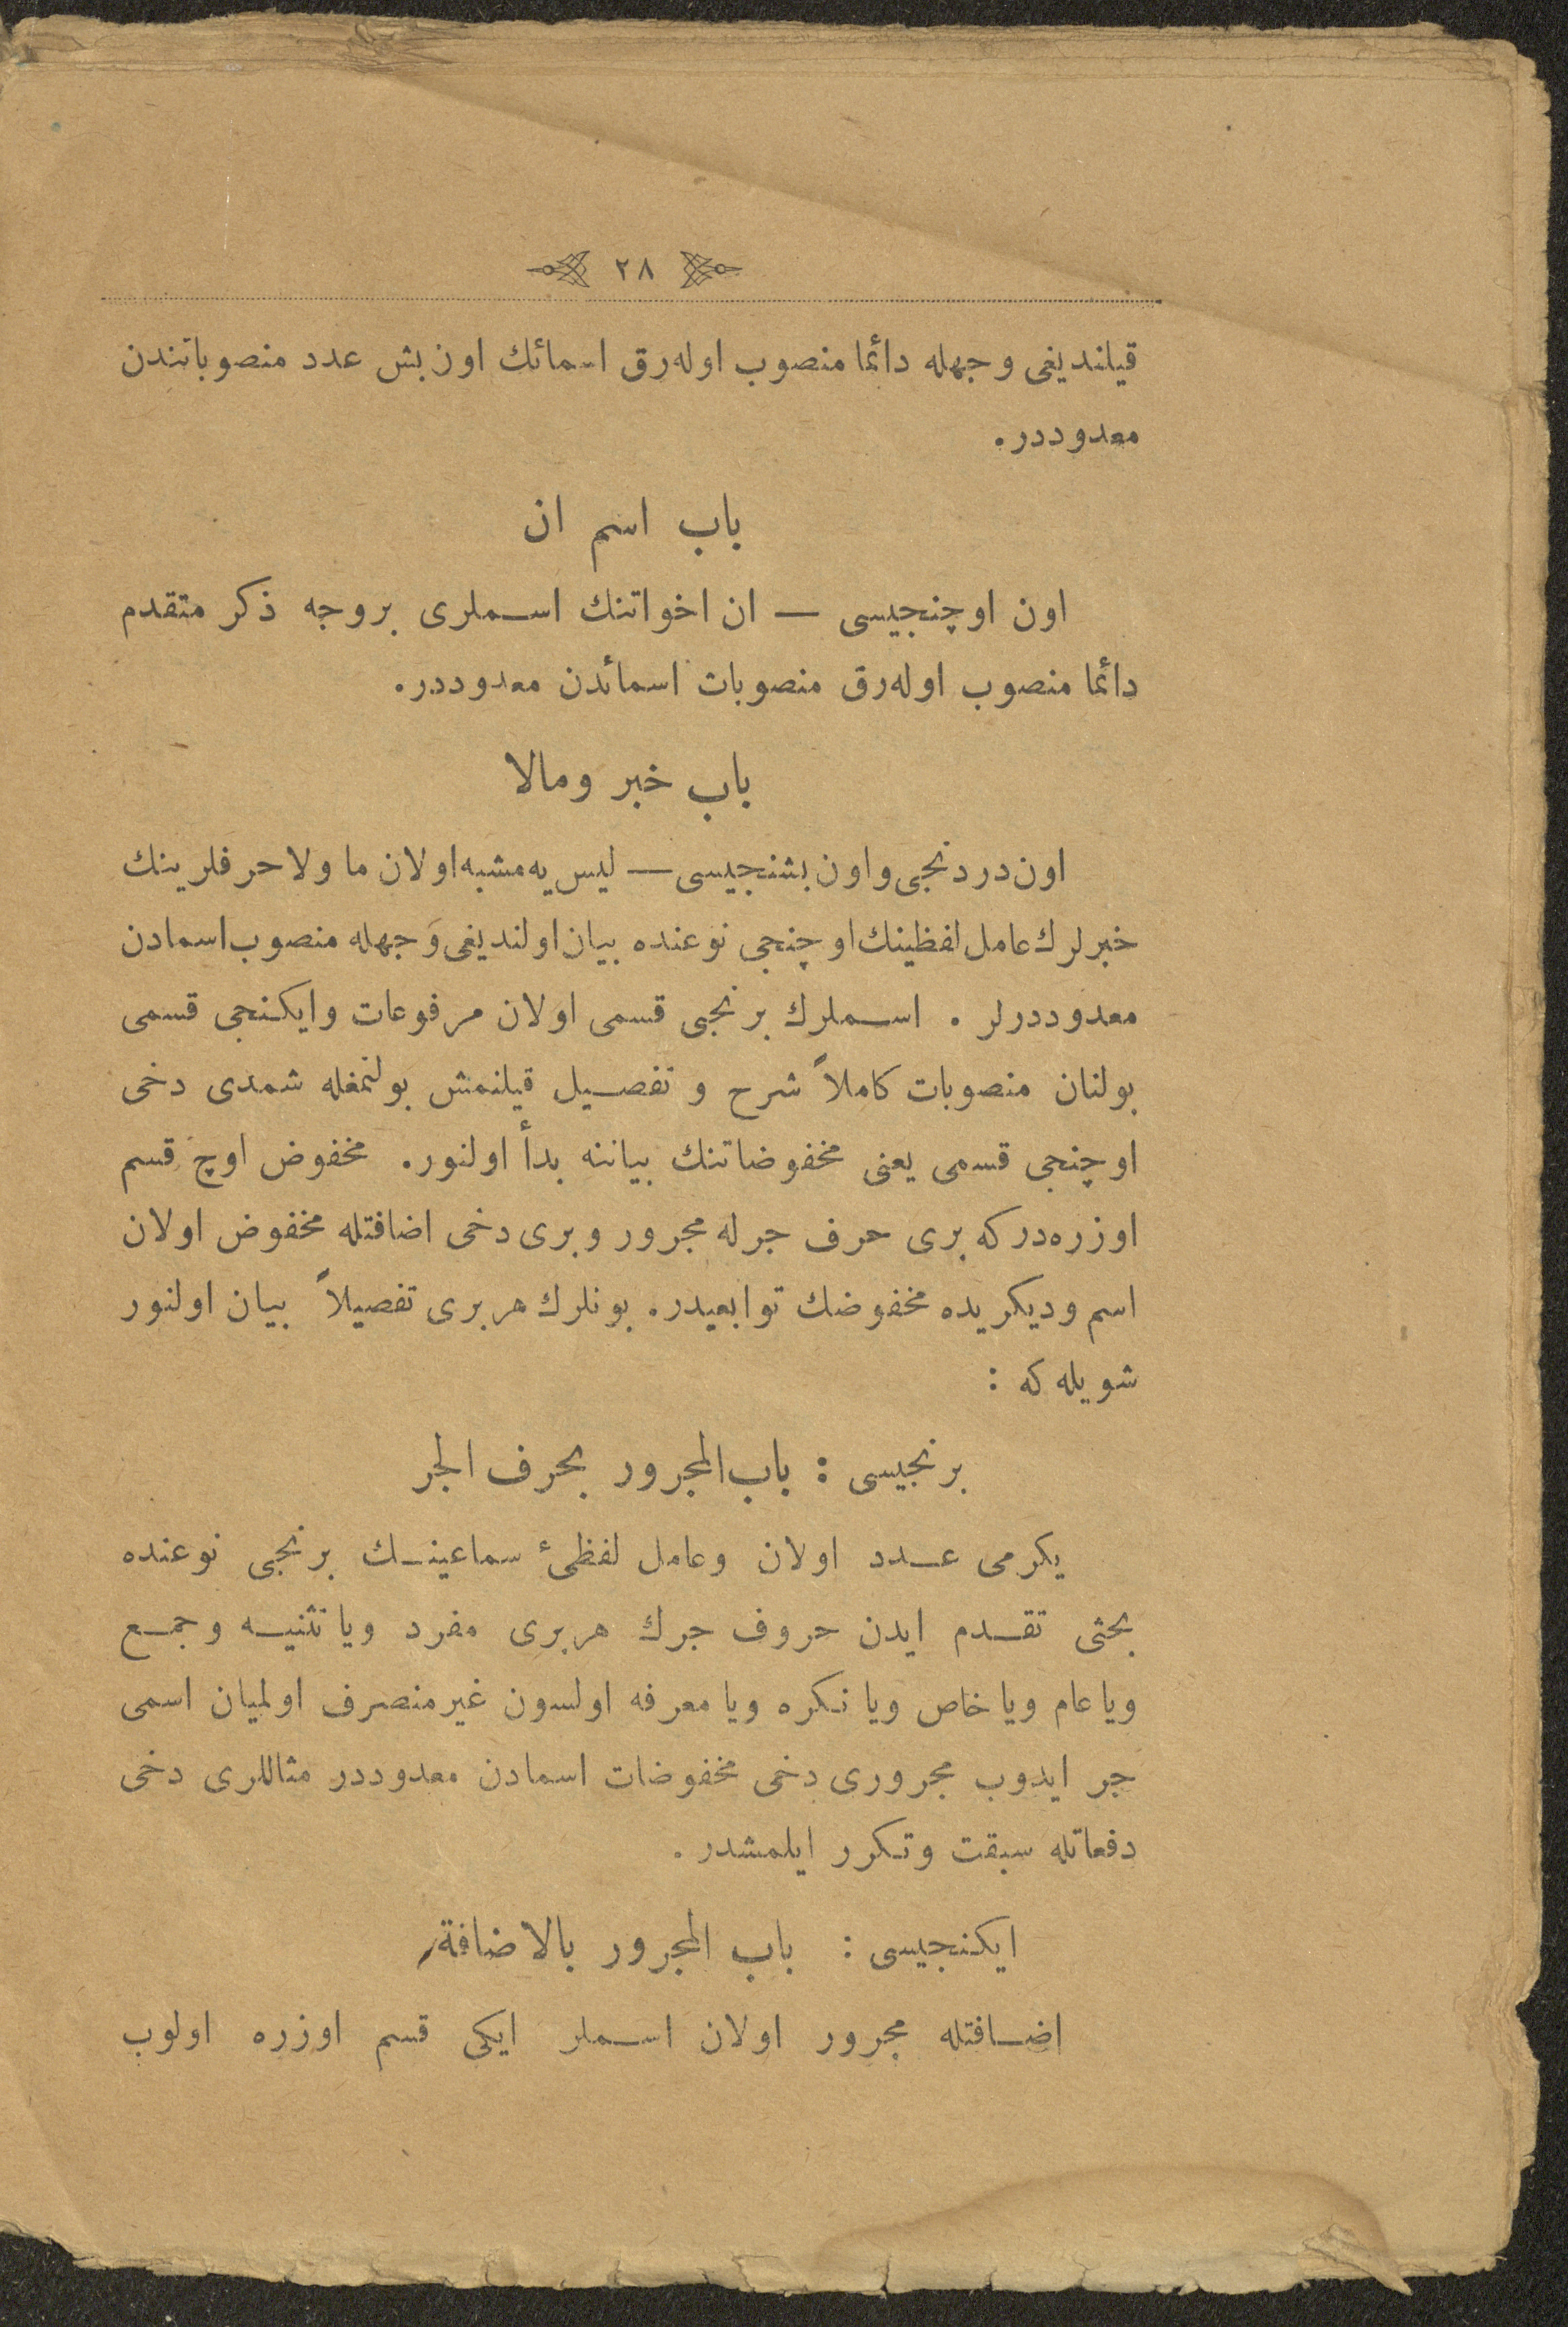 ٢٨
قیلندیغی وجهله دائما منصوب اوله‌رق اسمائك اون بش عدد منصوباتندن
معدوددر.
باب اسم ان
اون اوچنجیسی — ان اخواتنك اسملری بروجه ذكر متقدم
دائما منصوب اوله‌رق منصوبات اسمائدن معدوددر.
باب خبر ومالا
اون دردنجی واون بشنجیسی — لیس یه مشبه اولان ما ولا حرفلرینك
خبرلرك عامل لفظینك اوچنجی نوعنده بیان اولندیغی وجهله منصوب اسمادن
معدوددرلر . اسملرك برنجی قسمی اولان مرفوعات وایكنجی قسمی
بولنان منصوبات كاملاً شرح و تفصیل قیلنمش بولنمغله شمدی دخی
اوچنجی قسمی یعنی مخفوضاتنك بیاننه بدأ اولنور. مخفوض اوچ قسم
اوزره‌در كه بری حرف جرله مجرور وبری دخی اضافتله مخفوض اولان
اسم ودیكریده مخفوضك توابعیدر. بونلرك هربری تفصیلاً بیان اولنور
شویله كه :
برنجیسی : باب المجرور بحرف الجر
یكرمی عدد اولان وعامل لفظیٔ سماعینك برنجی نوعنده
بحثی تقدم ایدن حروف جرك هربری مفرد ویا تثنیه وجمع
ویا عام ویا خاص ویا نكره ویا معرفه اولسون غیر منصرف اولمیان اسمی
جر ایدوب مجروری دخی مخفوضات اسمادن معدوددر مثاللری دخی
دفعاتله سبقت وتكرر ایلمشدر .
ایكنجیسی : باب المجرور بالاضافة
اضافتله مجرور اولان اسملر ایكی قسم اوزره اولوب